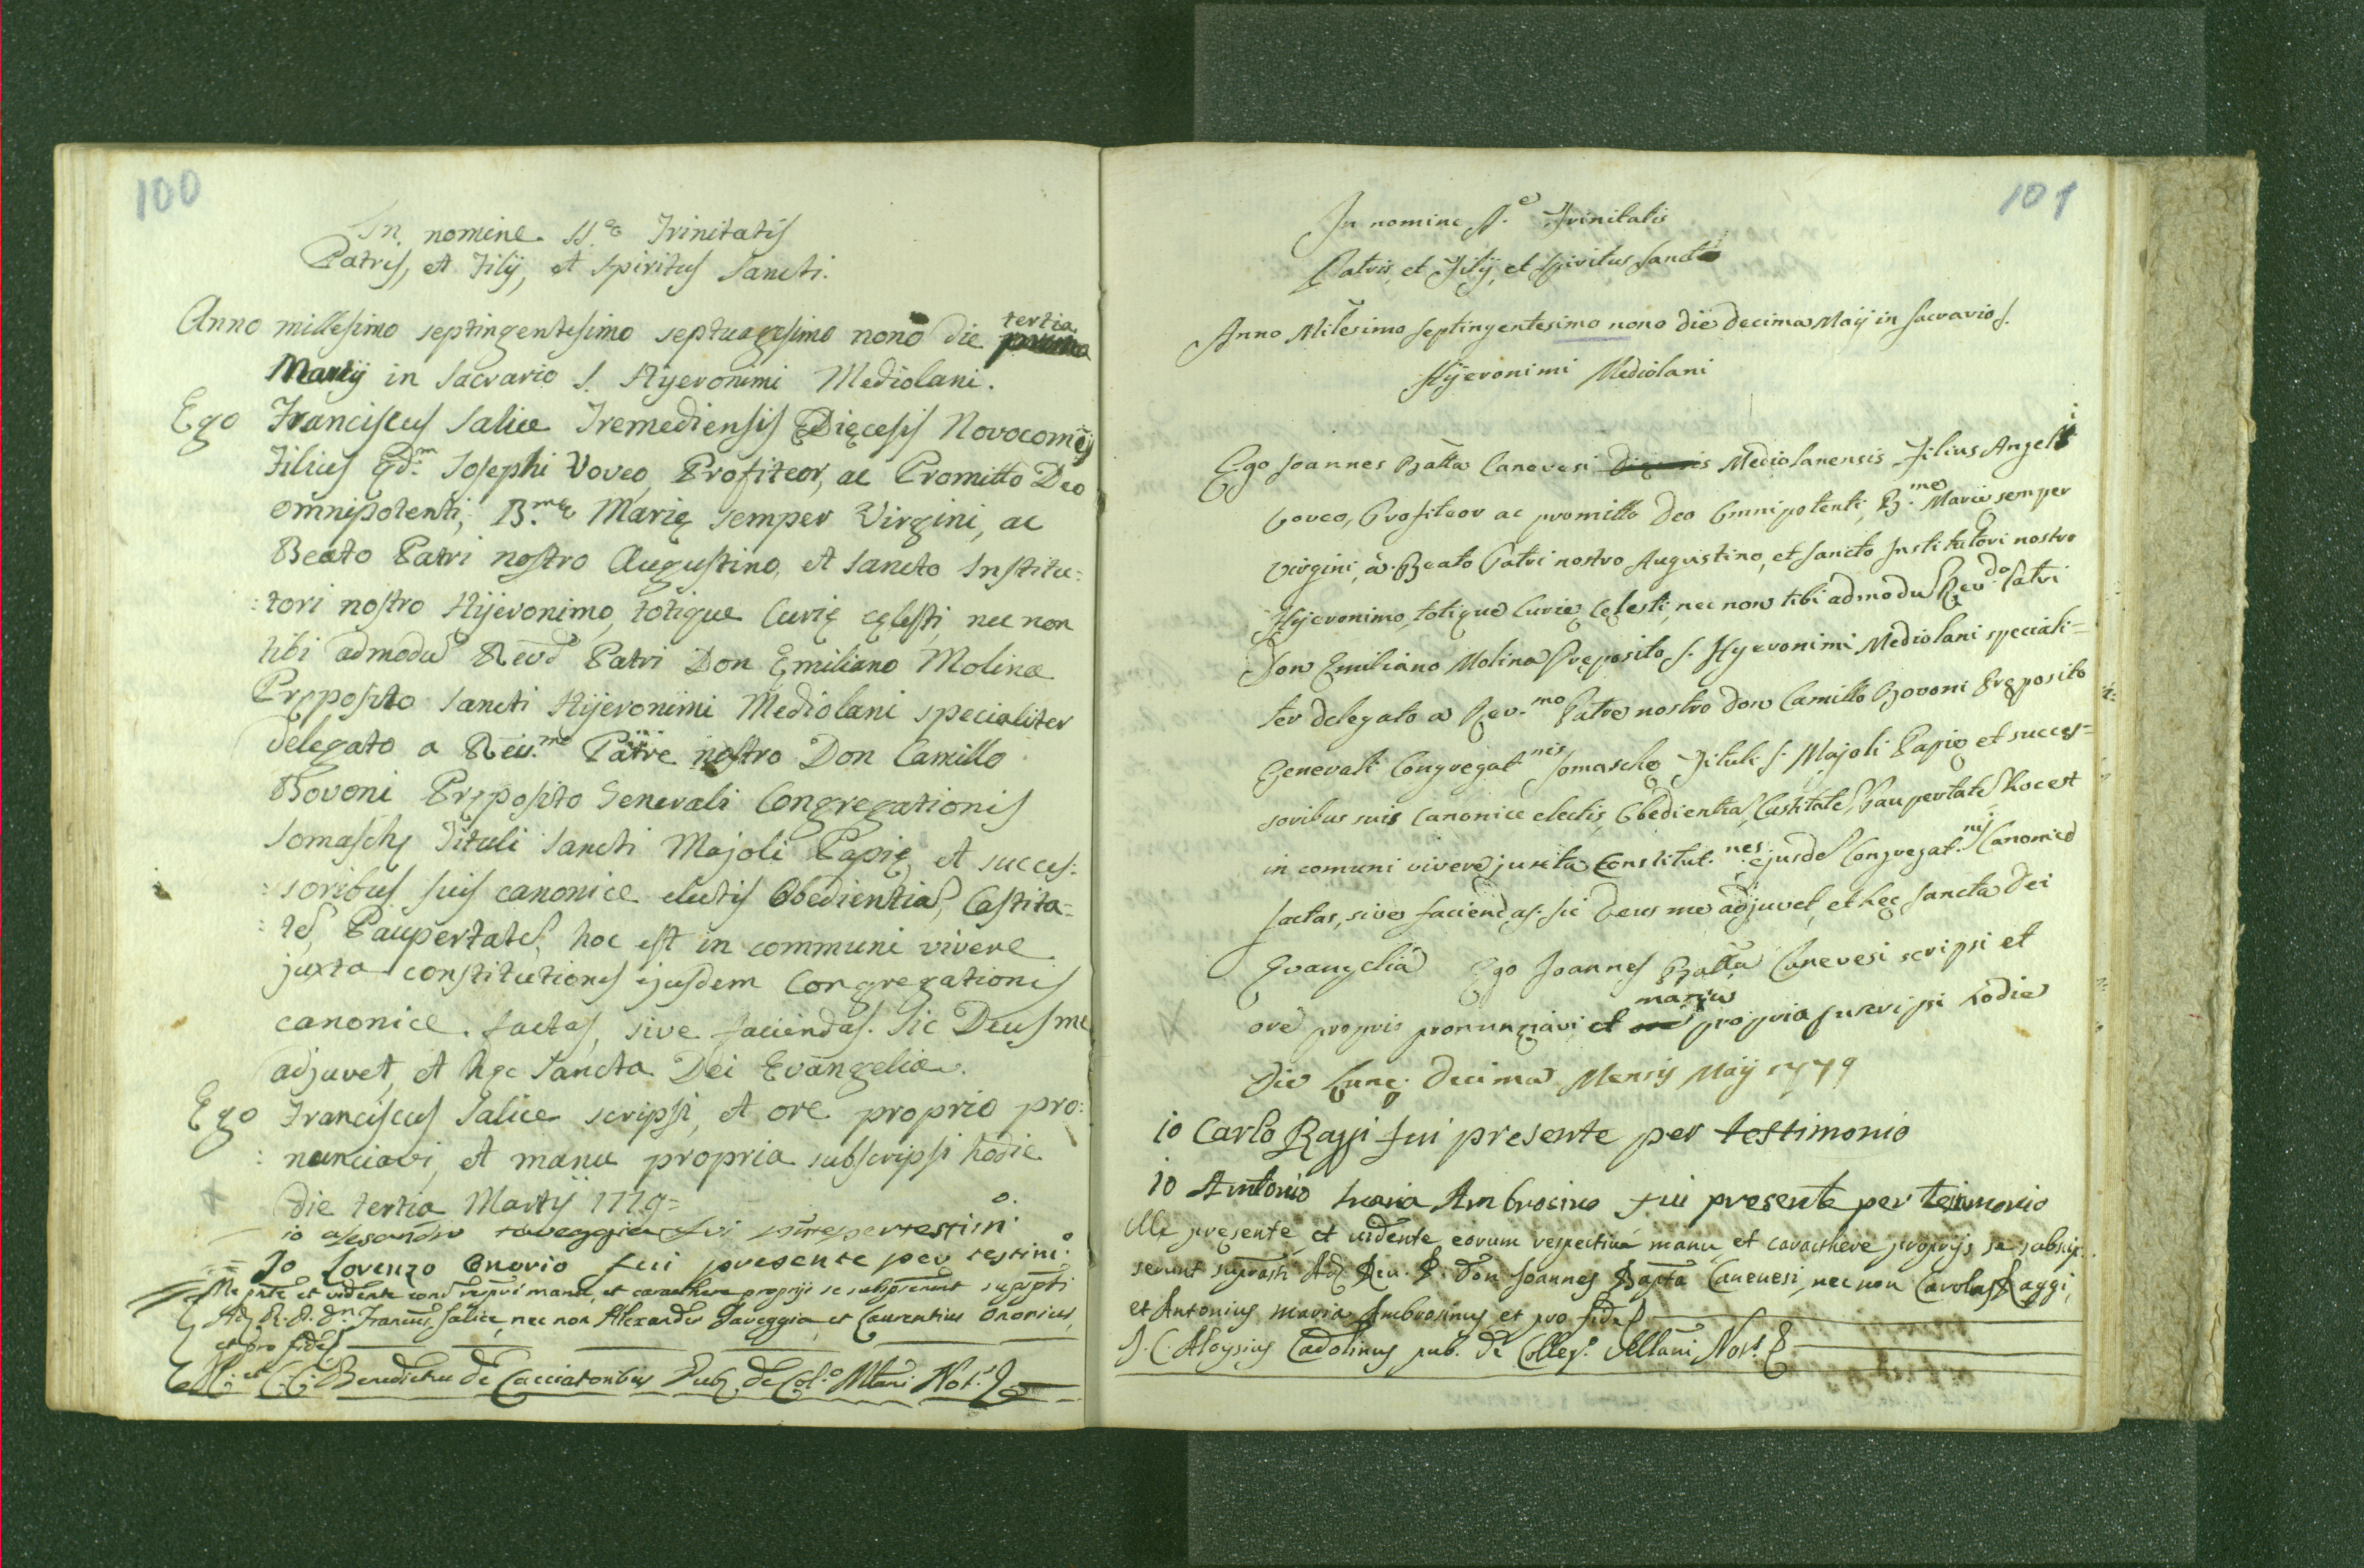 100
In nomine SS.æ Trinitatis
Patris, et Filij, et Spiritus Sancti.
Anno millesimo septingentesimo septuagesimo nono die tertia
Martij in Sacrario S. Hyeronimi Mediolani.
Ego Franciscus Salice Tremediensis Dięcesis Novocomēs
Filius qd.m Josephi Voveo, Profiteor, ac Promitto Deo
omnipotenti, B.mę Marię semper Virgini, ac
Beato Patri nostro Augustino, et Sancto Institu:
:tori nostro Hijeronimo, totique Curię cęlesti, nec non
tibi admodū Revd Patri Don Emiliano Molina
Pręposito Sancti Hijeronimi Mediolani specialiter
delegato a Reu.mo Patre nostro Don Camillo
Bovoni Pręposito Generali Congregationis
Somaschę Tituli Sancti Majoli Papię, et succes:
:soribus suis canonice electis Obedientiā, Castita=
:tē, Paupertatē, hoc est in communi vivere
juxta constitutiones ejusdem Congregationis
canonice factas, sive faciendas. Sic Deus me
adjuvet, et hęc Sancta Dei Evangelia.
Ego Franciscus Salice scripsi, et ore proprio pro:
:nunciavi, et manu propria subscripsi hodie
die tertia Martij 1779=
io alesandro raveggia fui per testim.o
Io Lorenzo Onorio fui presente per testim.o
Me pnte et vidente manu, et carathere proprijs se subscripserunt
Adm R. P. Dn. Francus Salice, nec non Alexander Raveggia, et Laurentius Onorius,
et pro fide
Benedictus de Cacciatoribus Pub. de Col.o Mlani Not.s
101
In nomine SS.e Trinitatis
Patris, et Filij, et Spiritus Sancti
Anno Milesimo septingentesimo nono die decima Maij in Sacrario S.
Hijeronimi Mediolani
Ego Joannes Batta Canevesi Mediolanensis Filius Angeli
Voveo, Profiteor ac promitto Deo Omnipotenti, B.me Marię semper
Virgini, ac Beato Patri nostro Augustino, et Sancto Institutori nostro
Hijeronimo, totique Curię Cęlesti, nec non tibi admodū Rev.do Patri
Don Emiliano Molina Pręposito S. Hyeronimi Mediolani speciali=
ter delegato a Rev.mo Patre nostro don Camillo Bovoni Pręposito
Generali Congregat.nis Somaschę Tituli S. Majoli Papię et succes=
soribus suis Canonice electis, Obedientiā, Castitatē, Paupertatē, hoc est
in comuni vivere juxta Constitut.nes ejusdē Congregat.nis Canonice
factas, sive faciendas. Sic Deus me adjuvet, et hęc Sancta Dei
Evangelia Ego Joannes Batta Canevesi scripsi et
ore proprio pronunziavi, et manu propria suscripsi hodie
die Lunę decima Mensis Maij 1779
io Carlo Raggi fui presente per testimonio
io Antonio Maria Ambrosino fui presente per testimonio
Me presente, et vidente eorum respective manu, et carathere proprijs se subscrip.
serunt suprasti Ad. Reu. P. Don Joannes Bapta Caneuesi, nec non Carolus Raggi,
et Antonius Maria Ambrosinus et pro fide
J. C. Aloysius Cadolinus pub. de Colleg.o Mllani Not.s